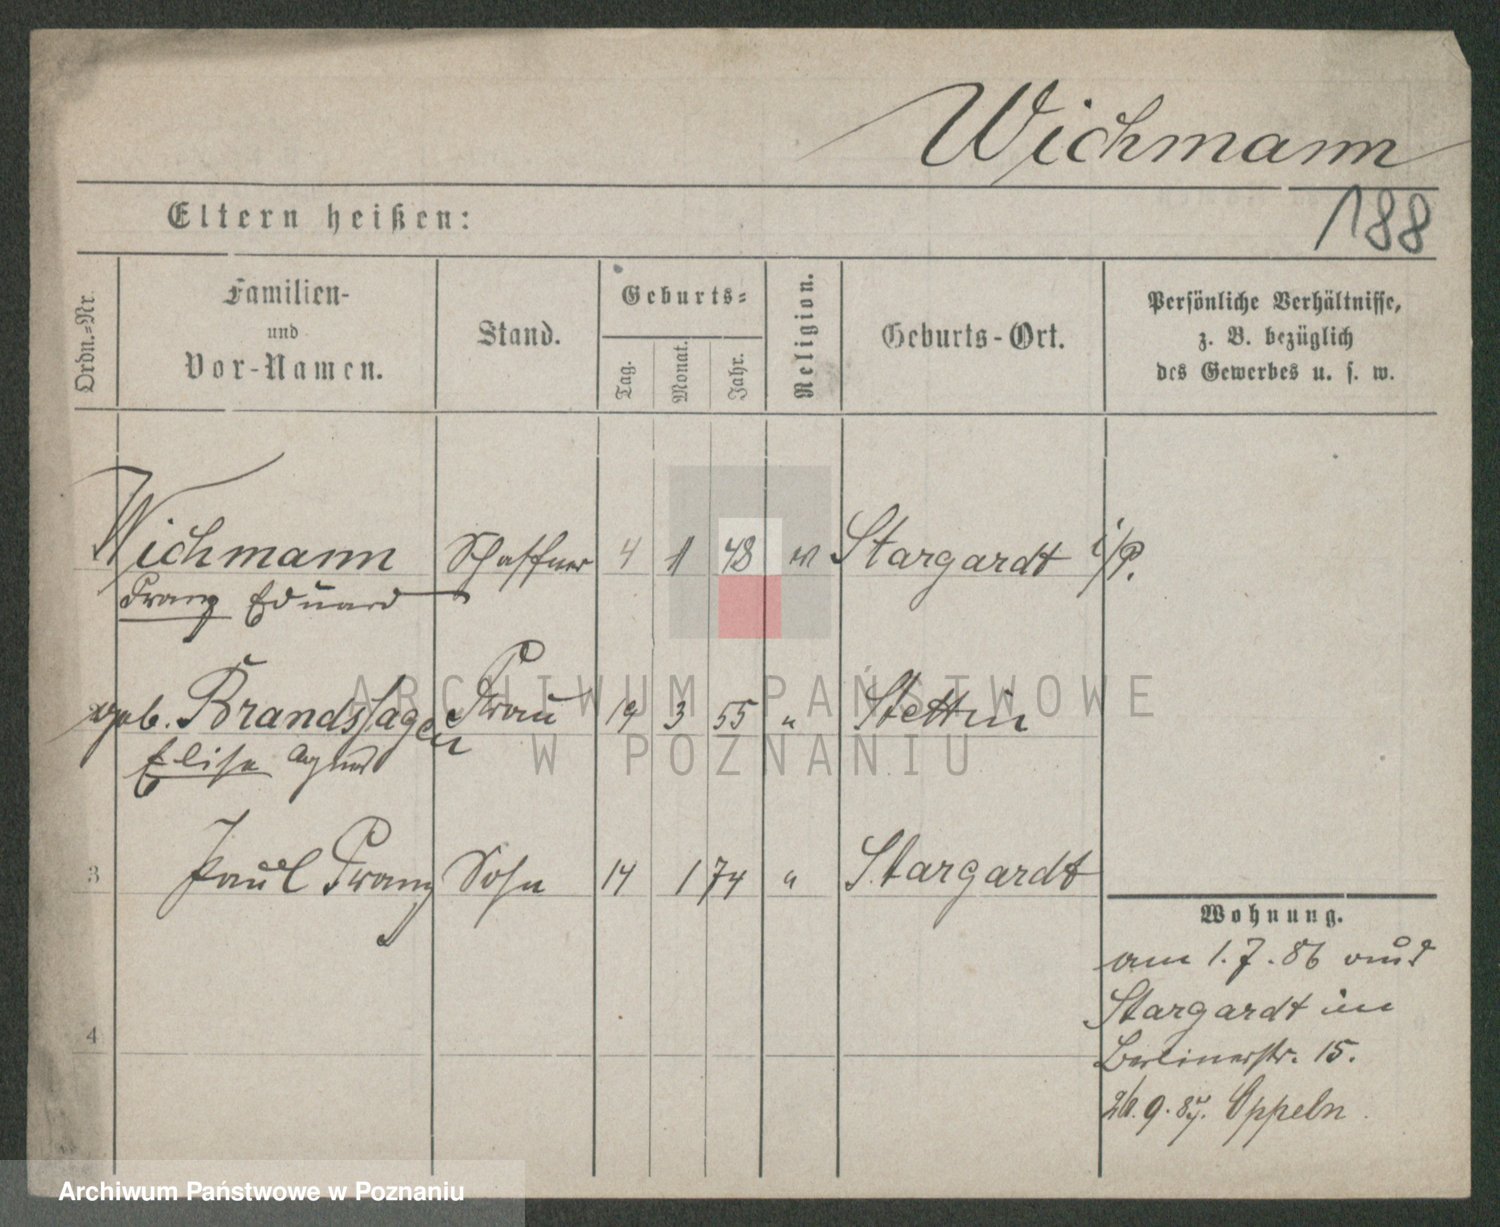 Wichmann
188
Eltern heißen:
Ordn.=Nr.
Familien-
und
Vor-Namen.
Stand.
Geburts=
Tag.
Monat.
Jahr.
Religion.
Geburts-Ort.
Persönliche Verhältnisse,
z. B. bezüglich
des Gewerbes u. s. w.
Wichmann Schaffner 4 1 48 Stargardt i/P.
Franz Eduard
geb. Brandshagen Frau 19 3 55 " Stettin
Elise Agnes
3 Paul Franz Sohn 14 1 74 " Stargardt
4
Wohnung.
am 1.7.86 aus
Stargardt in
Berlinerstr. 15.
9. 87. Oppeln
ARCHIWUM PAŃSTWOWE
W POZNANIU
Archiwum Państwowe w Poznaniu